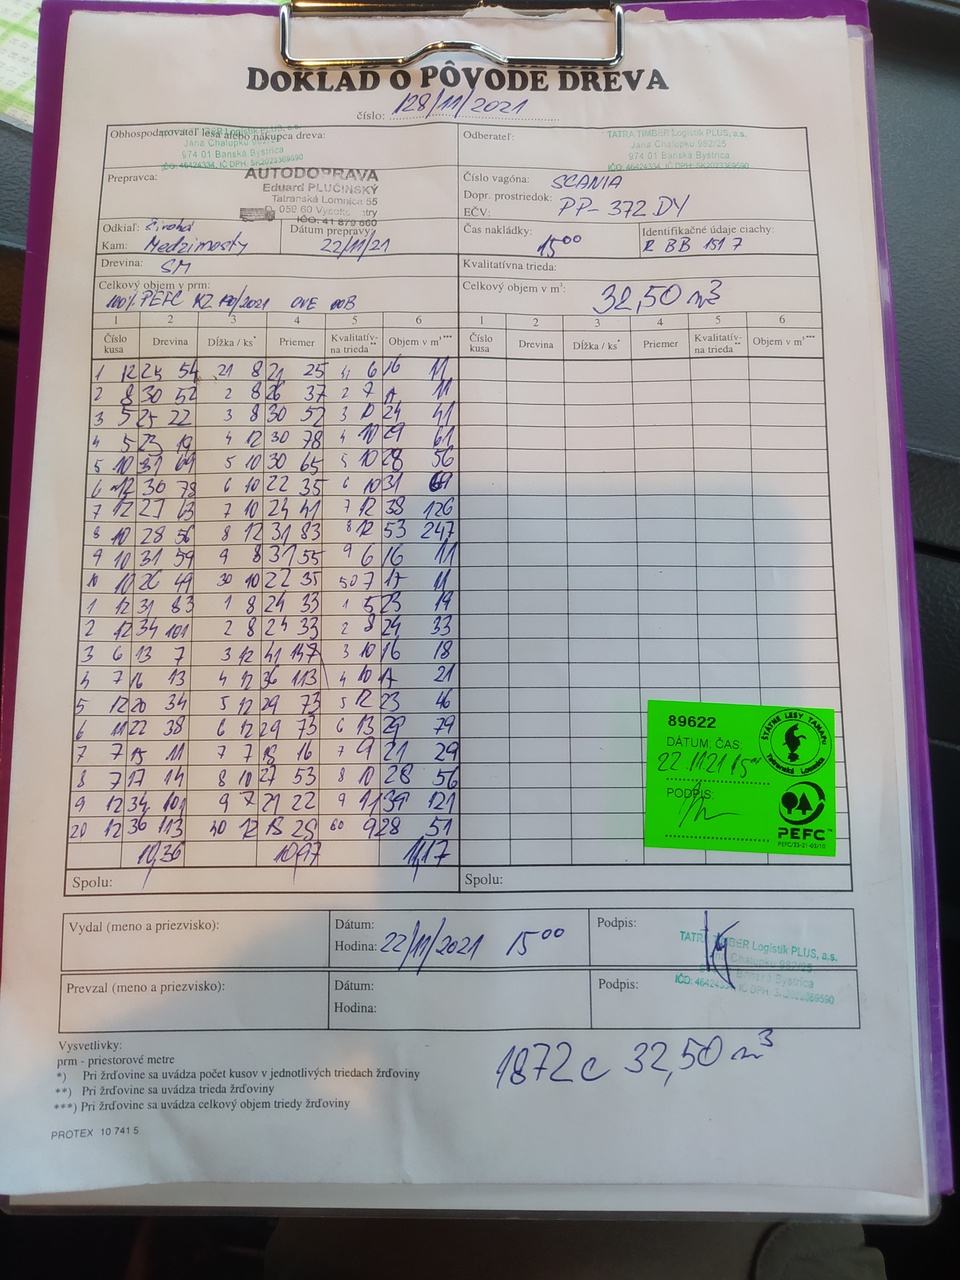 DOKLAD O PÔVODE DREVA
číslo: 128/11/2021
Obhospodarovateľ lesa alebo nákupca dreva:
Jána Chalupku 982/25
974 01 Banská Bystrica
IČO: 46424334, IČ DPH: SK2023369590
Odberateľ:
TATRA TIMBER Logistik PLUS, a.s.
Jána Chalupku 982/25
974 01 Banská Bystrica
IČO: 46424334, IČ DPH: SK2023369590
Prepravca:
AUTODOPRAVA
Eduard PLUČINSKÝ
Tatranská Lomnica 55
059 60 Vysoké Tatry
IČO: 41 879 660
Číslo vagóna: SCANIA
Dopr. prostriedok:
EČV: PP-372 DY
Odkiaľ: Široká
Kam: Medzimosty
Dátum prepravy:
22/11/21
Čas nakládky:
15 00
Identifikačné údaje ciachy:
R BB 151 7
Drevina: SM
Kvalitatívna trieda:
Celkový objem v prm:
100% PEFC KZ 190/2021
Celkový objem v m³: 32,50 m³
1 2 3 4 5 6 1 2 3 4 5 6
Číslo kusa Drevina Dĺžka / ks* Priemer Kvalitatív- na trieda** Objem v m³*** Číslo kusa Drevina Dĺžka / ks* Priemer Kvalitatív- na trieda** Objem v m³***
1 12 25 54 21 8 21 25 41 6 16 11
2 8 30 52 2 8 26 37 2 7 17 11
3 5 25 22 3 8 30 52 3 10 24 41
4 5 23 19 4 12 30 78 4 10 29 61
5 10 31 69 5 10 30 65 5 10 28 56
6 12 30 78 6 10 22 35 6 10 31 69
7 12 27 63 7 10 24 41 7 12 38 126
8 10 28 56 8 12 31 83 8 12 53 247
9 10 31 59 9 8 31 55 9 6 16 11
10 10 26 49 30 10 22 35 50 7 17 11
1 12 31 83 1 8 24 33 1 5 23 19
2 12 34 101 2 8 24 33 2 8 24 33
3 6 13 7 3 12 41 147 3 10 16 18
4 7 16 13 4 12 36 113 4 10 17 21
5 12 20 34 5 12 29 73 5 12 23 46
6 11 22 38 6 12 29 73 6 13 29 79
7 7 15 11 7 7 18 16 7 9 21 29
8 7 17 14 8 10 27 53 8 10 28 56
9 12 34 101 9 7 21 22 9 11 39 121
20 12 36 113 40 12 18 28 60 9 28 51
10,36 10,97 11,17
Spolu: Spolu:
89622
DÁTUM, ČAS:
22.11.21 15 00
PODPIS:
ŠTÁTNE LESY TANAPu
Tatranská Lomnica
PEFC
PEFC/23-21-03/10
Vydal (meno a priezvisko):
Dátum:
Hodina: 22/11/2021 15 00
Podpis:
TATRA TIMBER Logistik PLUS, a.s.
Jána Chalupku 982/25
Banská Bystrica
IČO: 46424334, IČ DPH: SK2023369590
Prevzal (meno a priezvisko):
Dátum:
Hodina:
Podpis:
Vysvetlivky:
prm - priestorové metre
*) Pri žrďovine sa uvádza počet kusov v jednotlivých triedach žrďoviny
**) Pri žrďovine sa uvádza trieda žrďoviny
***) Pri žrďovine sa uvádza celkový objem triedy žrďoviny
1872 c 32,50 m³
PROTEX 10 741 5